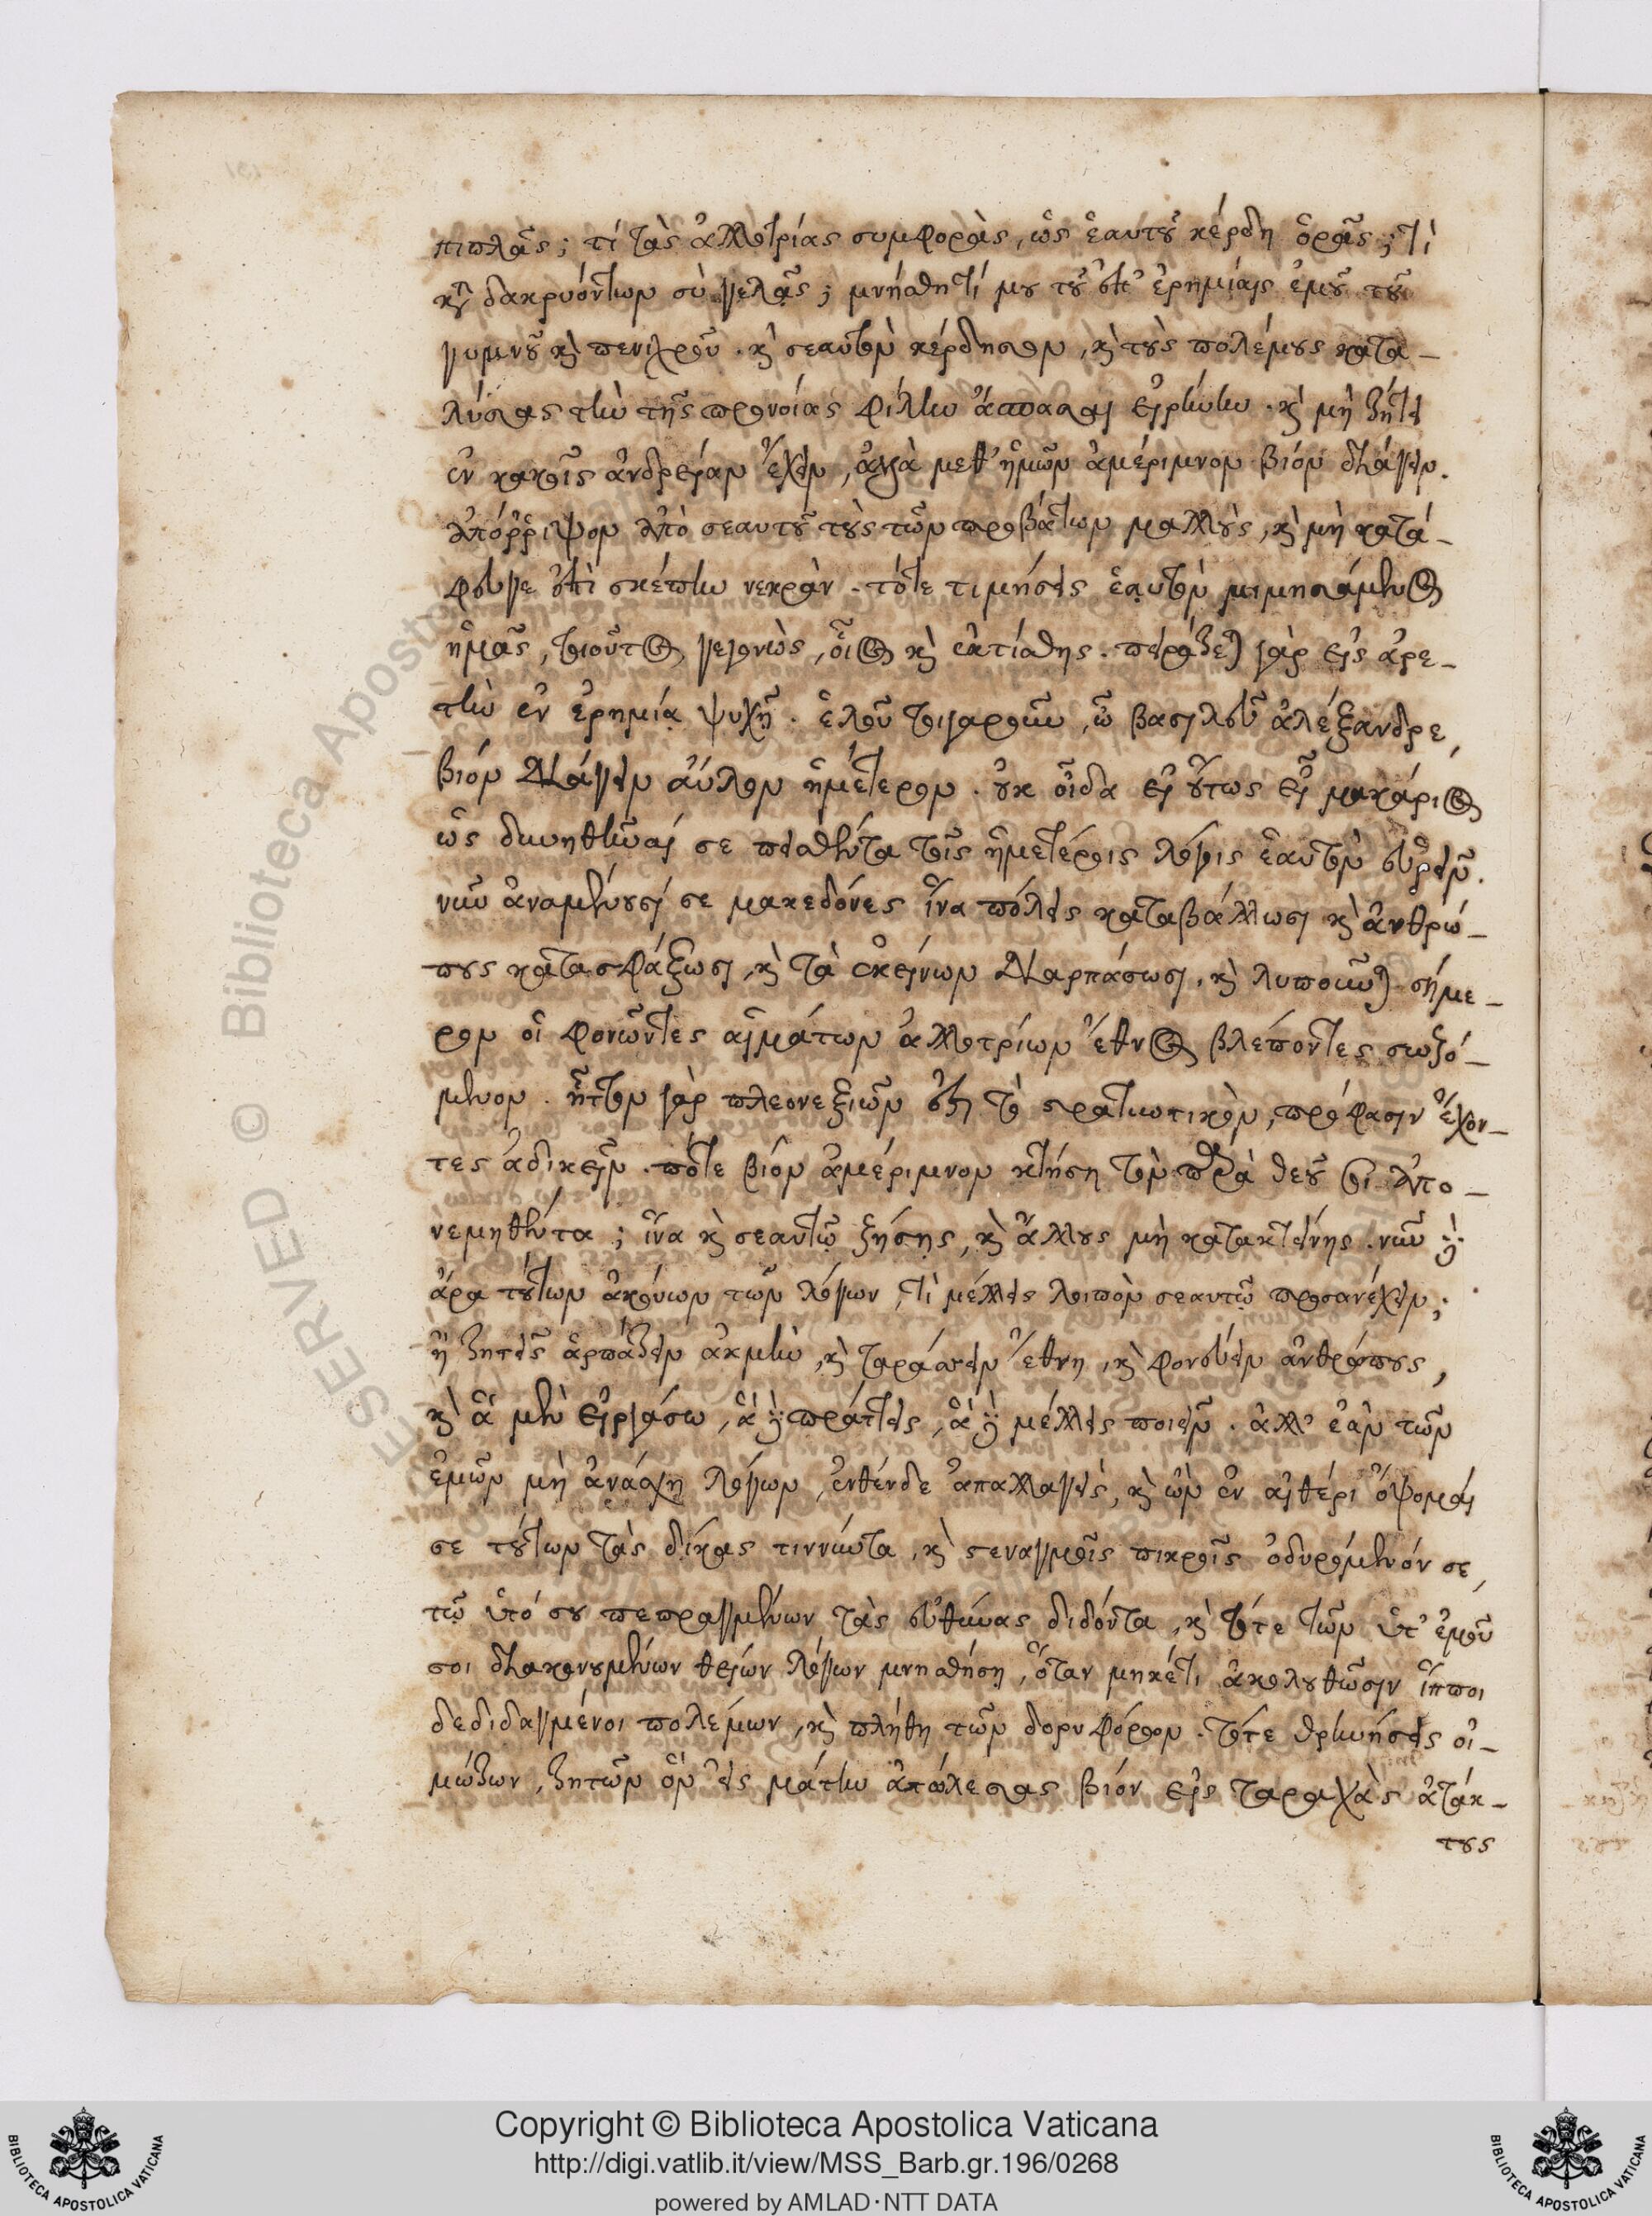 πιπλᾶς; τί τὰς ἀλλοτρίας συμφορὰς, ὡς ἑαυτοῦ κέρδη ὁρᾷς; τὶ
καὶ δακρυόντων σὺ γελᾷς; μνήσθητί μου τοῦ ἐπ' ἐρημίαις ἐμοῦ τοῦ
γυμνοῦ καὶ πενιχροῦ. καὶ σεαυτὸν κέρδησον, καὶ τοὺς πολέμους κατα-
λύσας τὴν τῆς προνοίας φίλην ἄσπασαι εἰρήνην. καὶ μὴ ζήτει
ἐν κακοῖς ἀνδρείαν ἔχειν, ἀλλὰ μεθ' ἡμῶν ἀμέριμνον βίον διάγειν.
ἀπόρριψον ἀπὸ σεαυτοῦ τοὺς τῶν προβάτων μαλλοὺς, καὶ μὴ κατά-
φευγε ἐπὶ σκέπην νεκρὰν. τότε τιμήσεις ἑαυτὸν μιμησάμενος
ἡμᾶς, τοιοῦτος γεγονὼς, οἷος καὶ ἐκτίσθης. πειράζεται γὰρ εἰς ἀρε-
τὴν ἐν ἐρημίᾳ ψυχῇ. ἑλοῦ τοιγαροῦν, ὦ βασιλεῦ ἀλέξανδρε,
βιόν διάγειν ἄυλον ἡμέτερον. οὐκ οἶδα εἰ οὕτως εἶ μακάριος
ὡς δυνηθῆναί σε πεισθέντα τοῖς ἡμετέροις λόγοις ἑαυτὸν εὑρεῖν.
νῦν ἀναμένουσί σε μακεδόνες ἵνα πόλεις καταβάλλωσι καὶ ἀνθρώ-
πους κατασφάξωσι, καὶ τὰ ἐκείνων διαρπάσωσι, καὶ λυποῦνται σήμε-
ρον οἱ φονῶντες αἱμάτων ἀλλοτρίων ἔθνος βλέποντες σωζό-
μενον. ἧττον γὰρ πλεονεξιῶν ἐστι τὸ στρατιωτικὸν, πρόφασιν ἔχον-
τες ἀδικεῖν. πότε βίον ἀμέριμνον κτήσῃ τὸν παρὰ θεοῦ σοι ἀπο-
νεμηθέντα; ἵνα καὶ σεαυτῷ ζήσῃς, καὶ ἄλλους μὴ κατακτείνῃς. νῦν δὲ
ἄρα τούτων ἀκούων τῶν λόγων, τὶ μέλλεις λοιπὸν σεαυτῷ προσανέχειν;
ἢ ζητεῖς ἁρπάζειν ἀκμὴν, καὶ ταράσσειν ἔθνη, καὶ φονεύειν ἀνθρώπους,
καὶ ἃ μὲν εἰργάσω, ἃ δὲ πράττεις, ἃ δὲ μέλλεις ποιεῖν. ἀλλ' ἐὰν τῶν
ἐμῶν μὴ ἀνάσχῃ λόγων, ἐνθένδε ἀπαλλαγεὶς, καὶ ὢν ἐν αἰθέρι ὄψομαι
σε τούτων τὰς δίκας τιννύντα, καὶ στεναγμοῖς πικροῖς ὀδυρόμενόν σε,
τῶ ὑπό σου πεπραγμένων τὰς εὐθύνας διδόντα, καὶ τότε τῶν ὑπ' ἐμοῦ
σοι διακονουμένων θείων λόγων μνησθήσῃ, ὅταν μηκέτι ἀκολουθῶσιν ἵπποι
δεδιδαγμένοι πολέμων, καὶ πλήθη τῶν δορυφόρον. τότε θρηνήσεις οἰ-
μώζων, ζητῶν ὃν εἰς μάτην ἀπώλεσας βίον εἰς ταραχὰς ἀτάκ-
τους
Copyright © Biblioteca Apostolica Vaticana
http://digi.vatlib.it/view/MSS_Barb.gr.196/0268
powered by AMLAD·NTT DATA